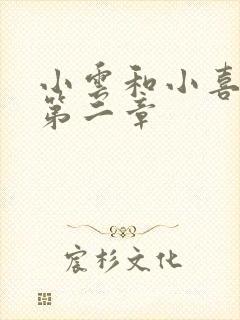 小雲和小喜
第二章
宸杉文化